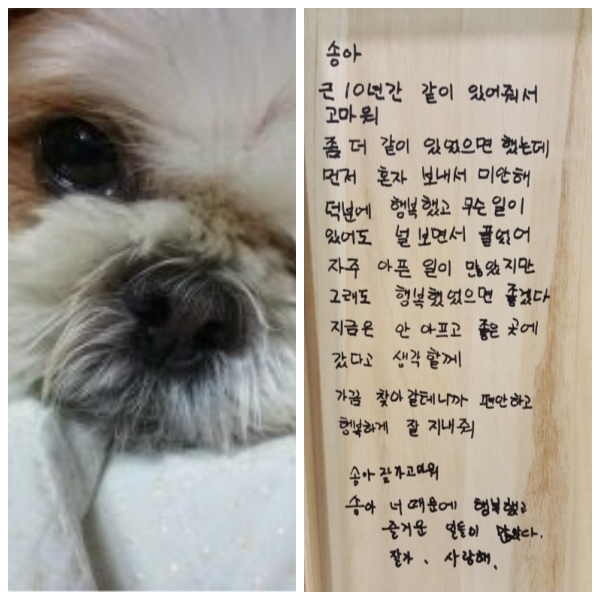 송아
근 10년간 같이 있어줘서
고마워
좀 더 같이 있었으면 했는데
먼저 혼자 보내서 미안해
덕분에 행복했고 무슨일이
있어도 널 보면서 풀었어
자주 아픈 일이 많았지만
그래도 행복했었으면 좋겠다
지금은 안 아프고 좋은 곳에
갔다고 생각할께
가끔 찾아갈테니까 편안하고
행복하게 잘 지내줘
송아 잘가고마워
송아 너 때문에 행복했고
즐거운 일들이 많았다.
잘가. 사랑해.